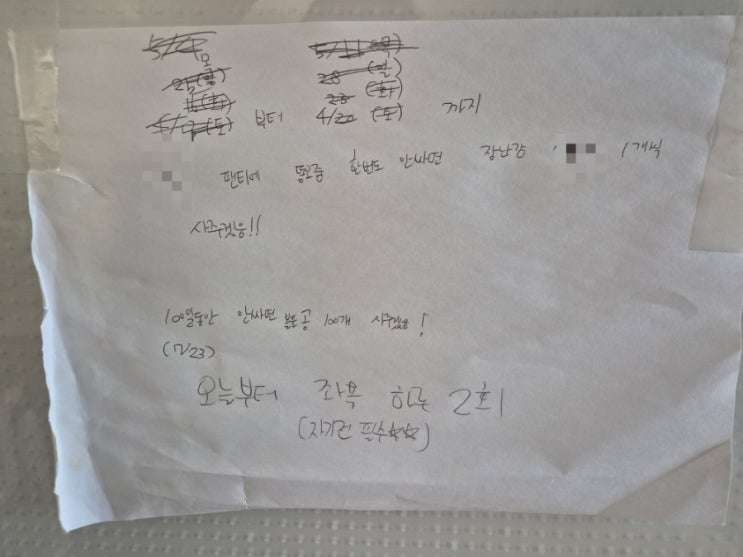 5/11 (목)
28 (일)
(화)
부터 4/20 (토) 까지
팬티에 똥오줌 한번도 안싸면 장난감 1개씩
사주겠음!!
100일동안 안싸면 뽑기공 100개 사주겠음!
(7/23)
오늘부터 좌욕 하루 2회
(자기전 필수☆☆)